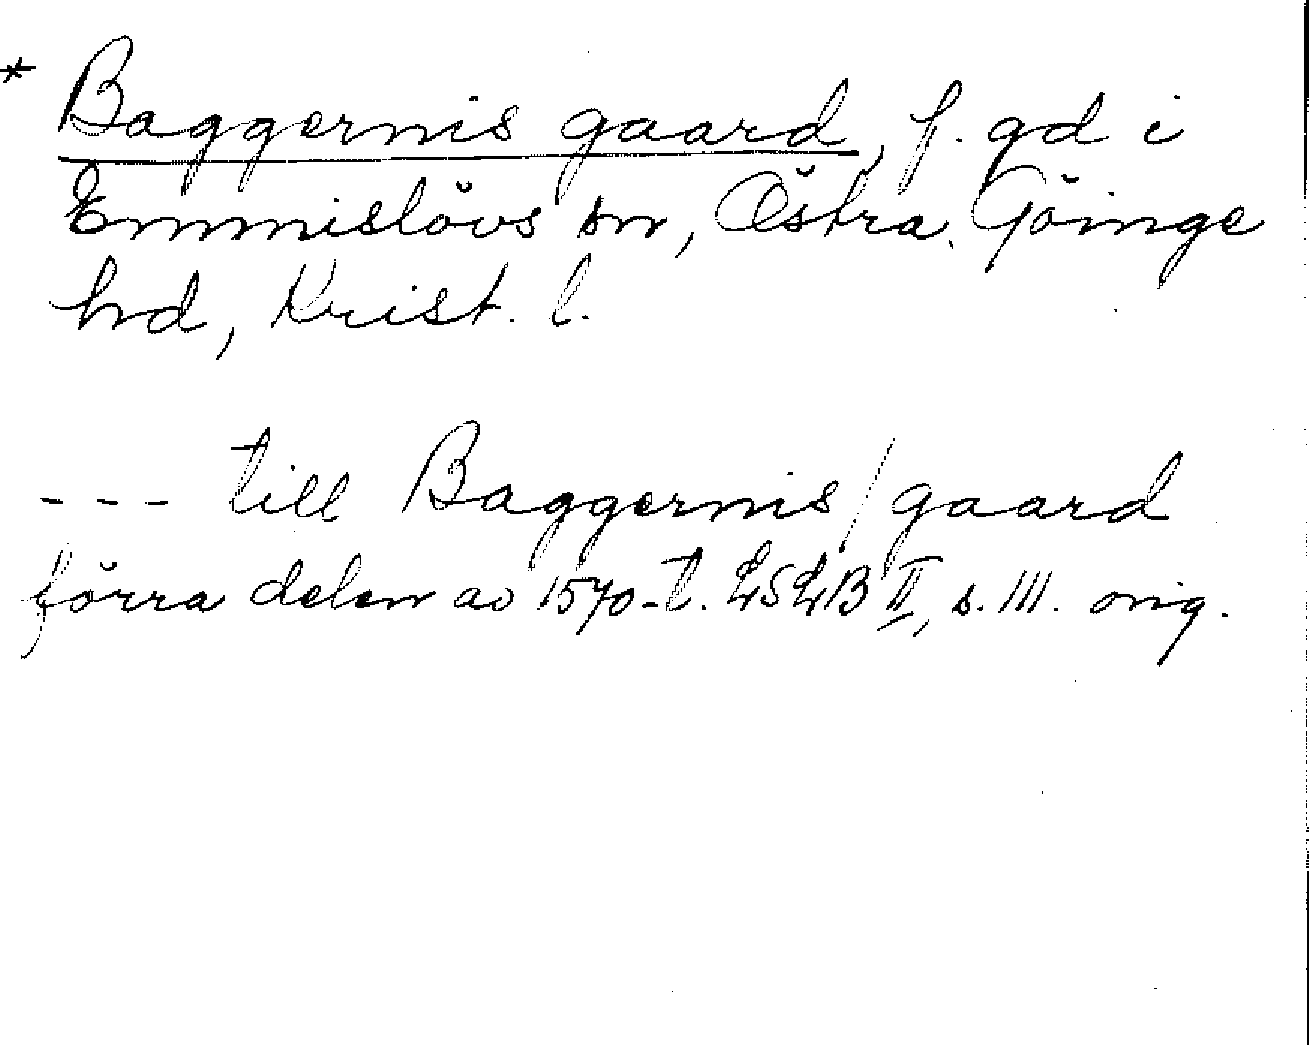 * Baggernis gaard, f. gd i
Emmislövs sn, Östra Göinge
hd, Krist. l.
--- till Baggernis/gaard
förra delen av 1570-t. LSLB II, s. 111. orig.